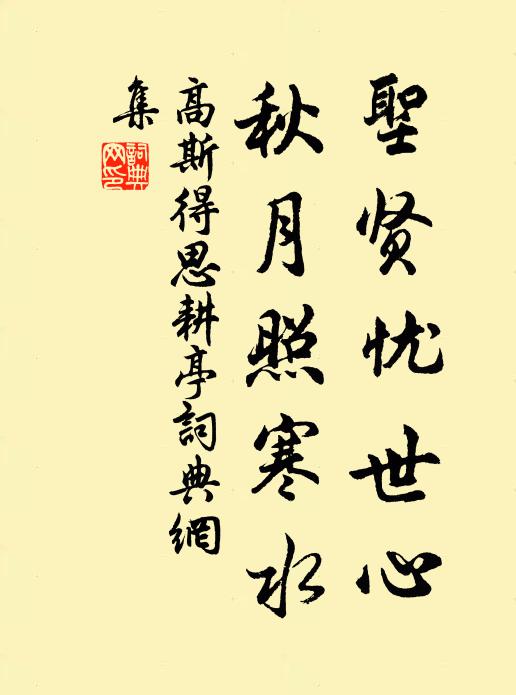 聖贤忧世心
秋月照寒水
高斯得思耕亭詞典網
集
詞典
网印